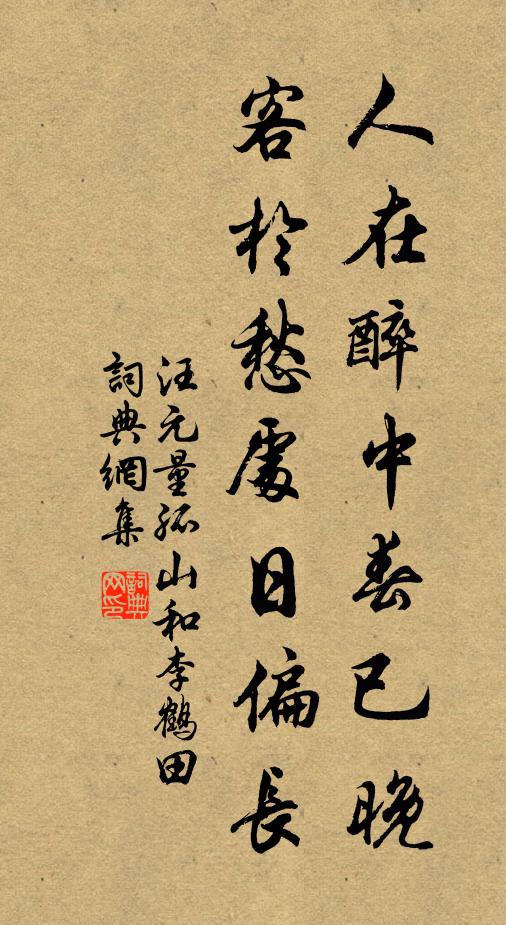 人在醉中春已晚
客於愁處日偏長
汪元量孤山和李鶴田
詞典網集
詞典网印